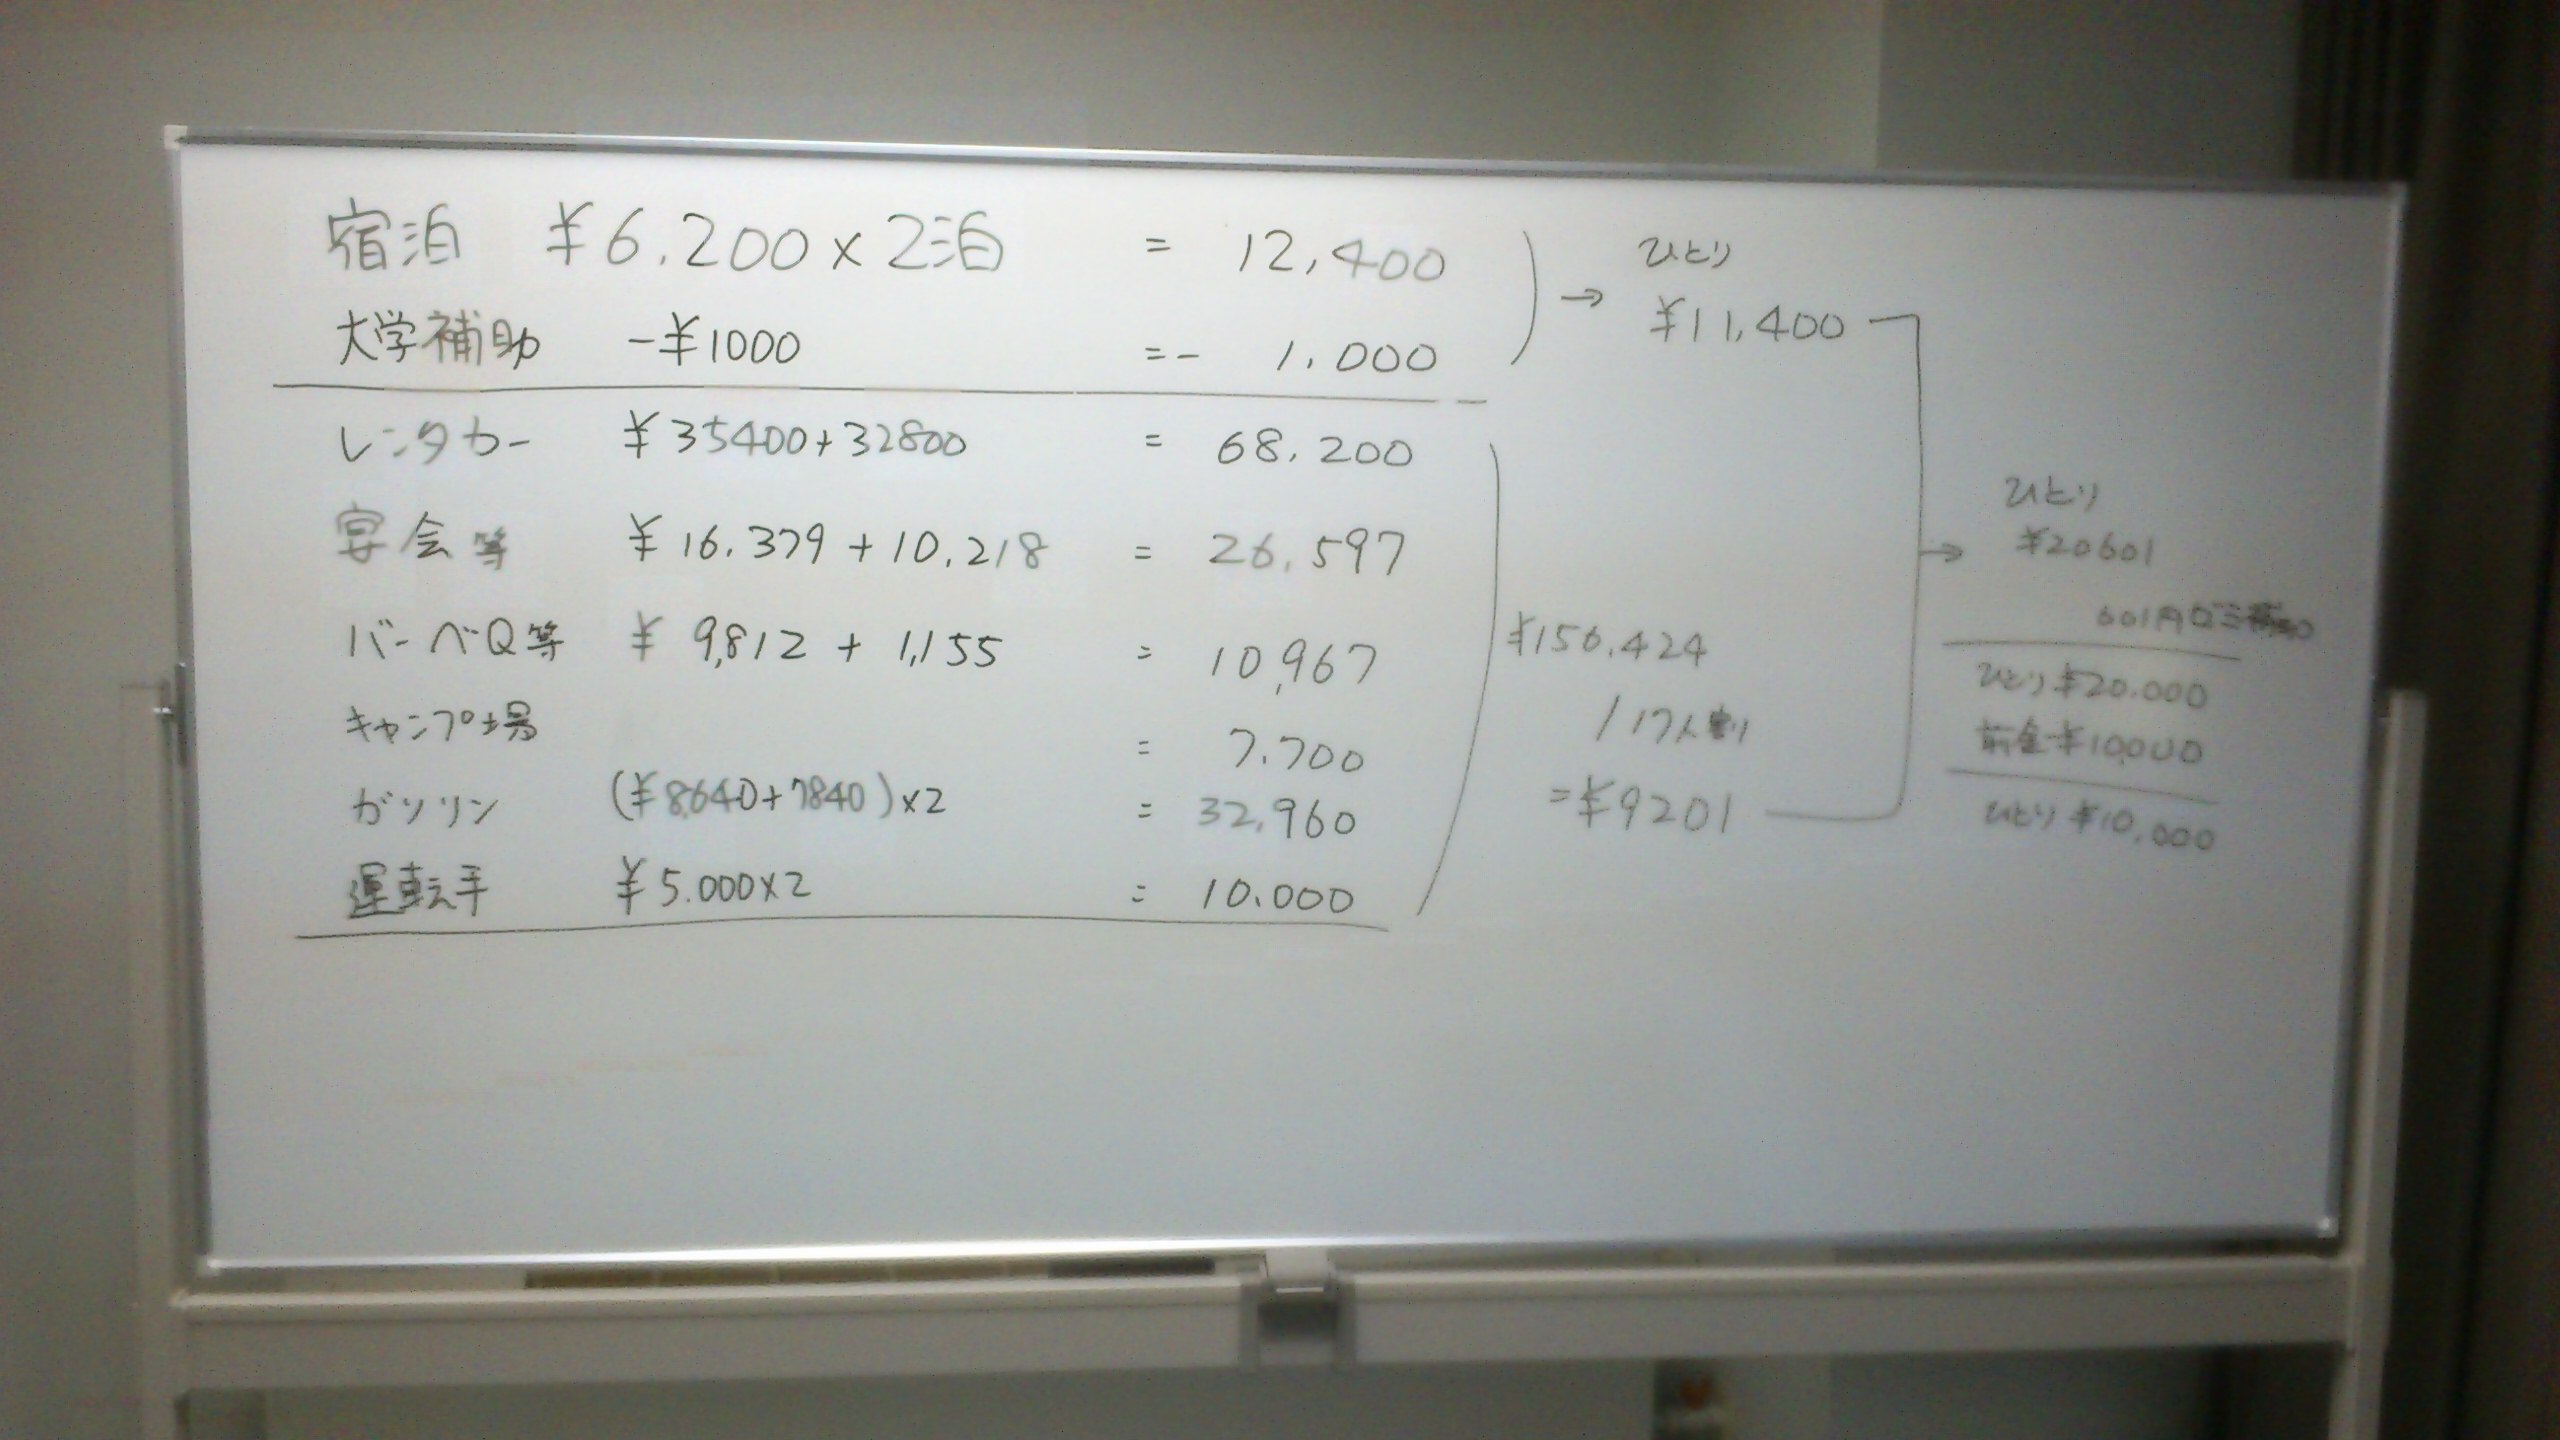 宿泊 ¥6.200×2泊 = 12,400
大学補助 -¥1000 =- 1.000
レンタカー ¥35400+32800 = 68.200
宴会等 ¥16.379+10.218 = 26.597
バーベQ等 ¥9,812+1,155 = 10,967
キャンプ場 = 7.700
ガソリン (¥8,640+7840)×2 = 32,960
運転手 ¥5.000×2 = 10.000
→ ひとり
¥11,400
¥156.424
/17人割
=¥9201
→ ひとり
¥20601
601円
ひとり ¥20.000
前金 ¥10,000
ひとり ¥10,000